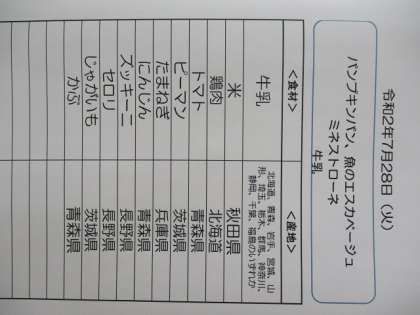 令和2年7月28日（火）
パンプキンパン、魚のエスカベージュ
ミネストローネ
牛乳
＜食材＞ ＜産地＞
牛乳 北海道、青森、岩手、宮城、山形、埼玉、栃木、群馬、神奈川、静岡、千葉、福島のいずれか
米 秋田県
鶏肉 北海道
トマト 青森県
ピーマン 茨城県
たまねぎ 兵庫県
にんじん 青森県
ズッキーニ 長野県
セロリ 長野県
じゃがいも 茨城県
かぶ 青森県